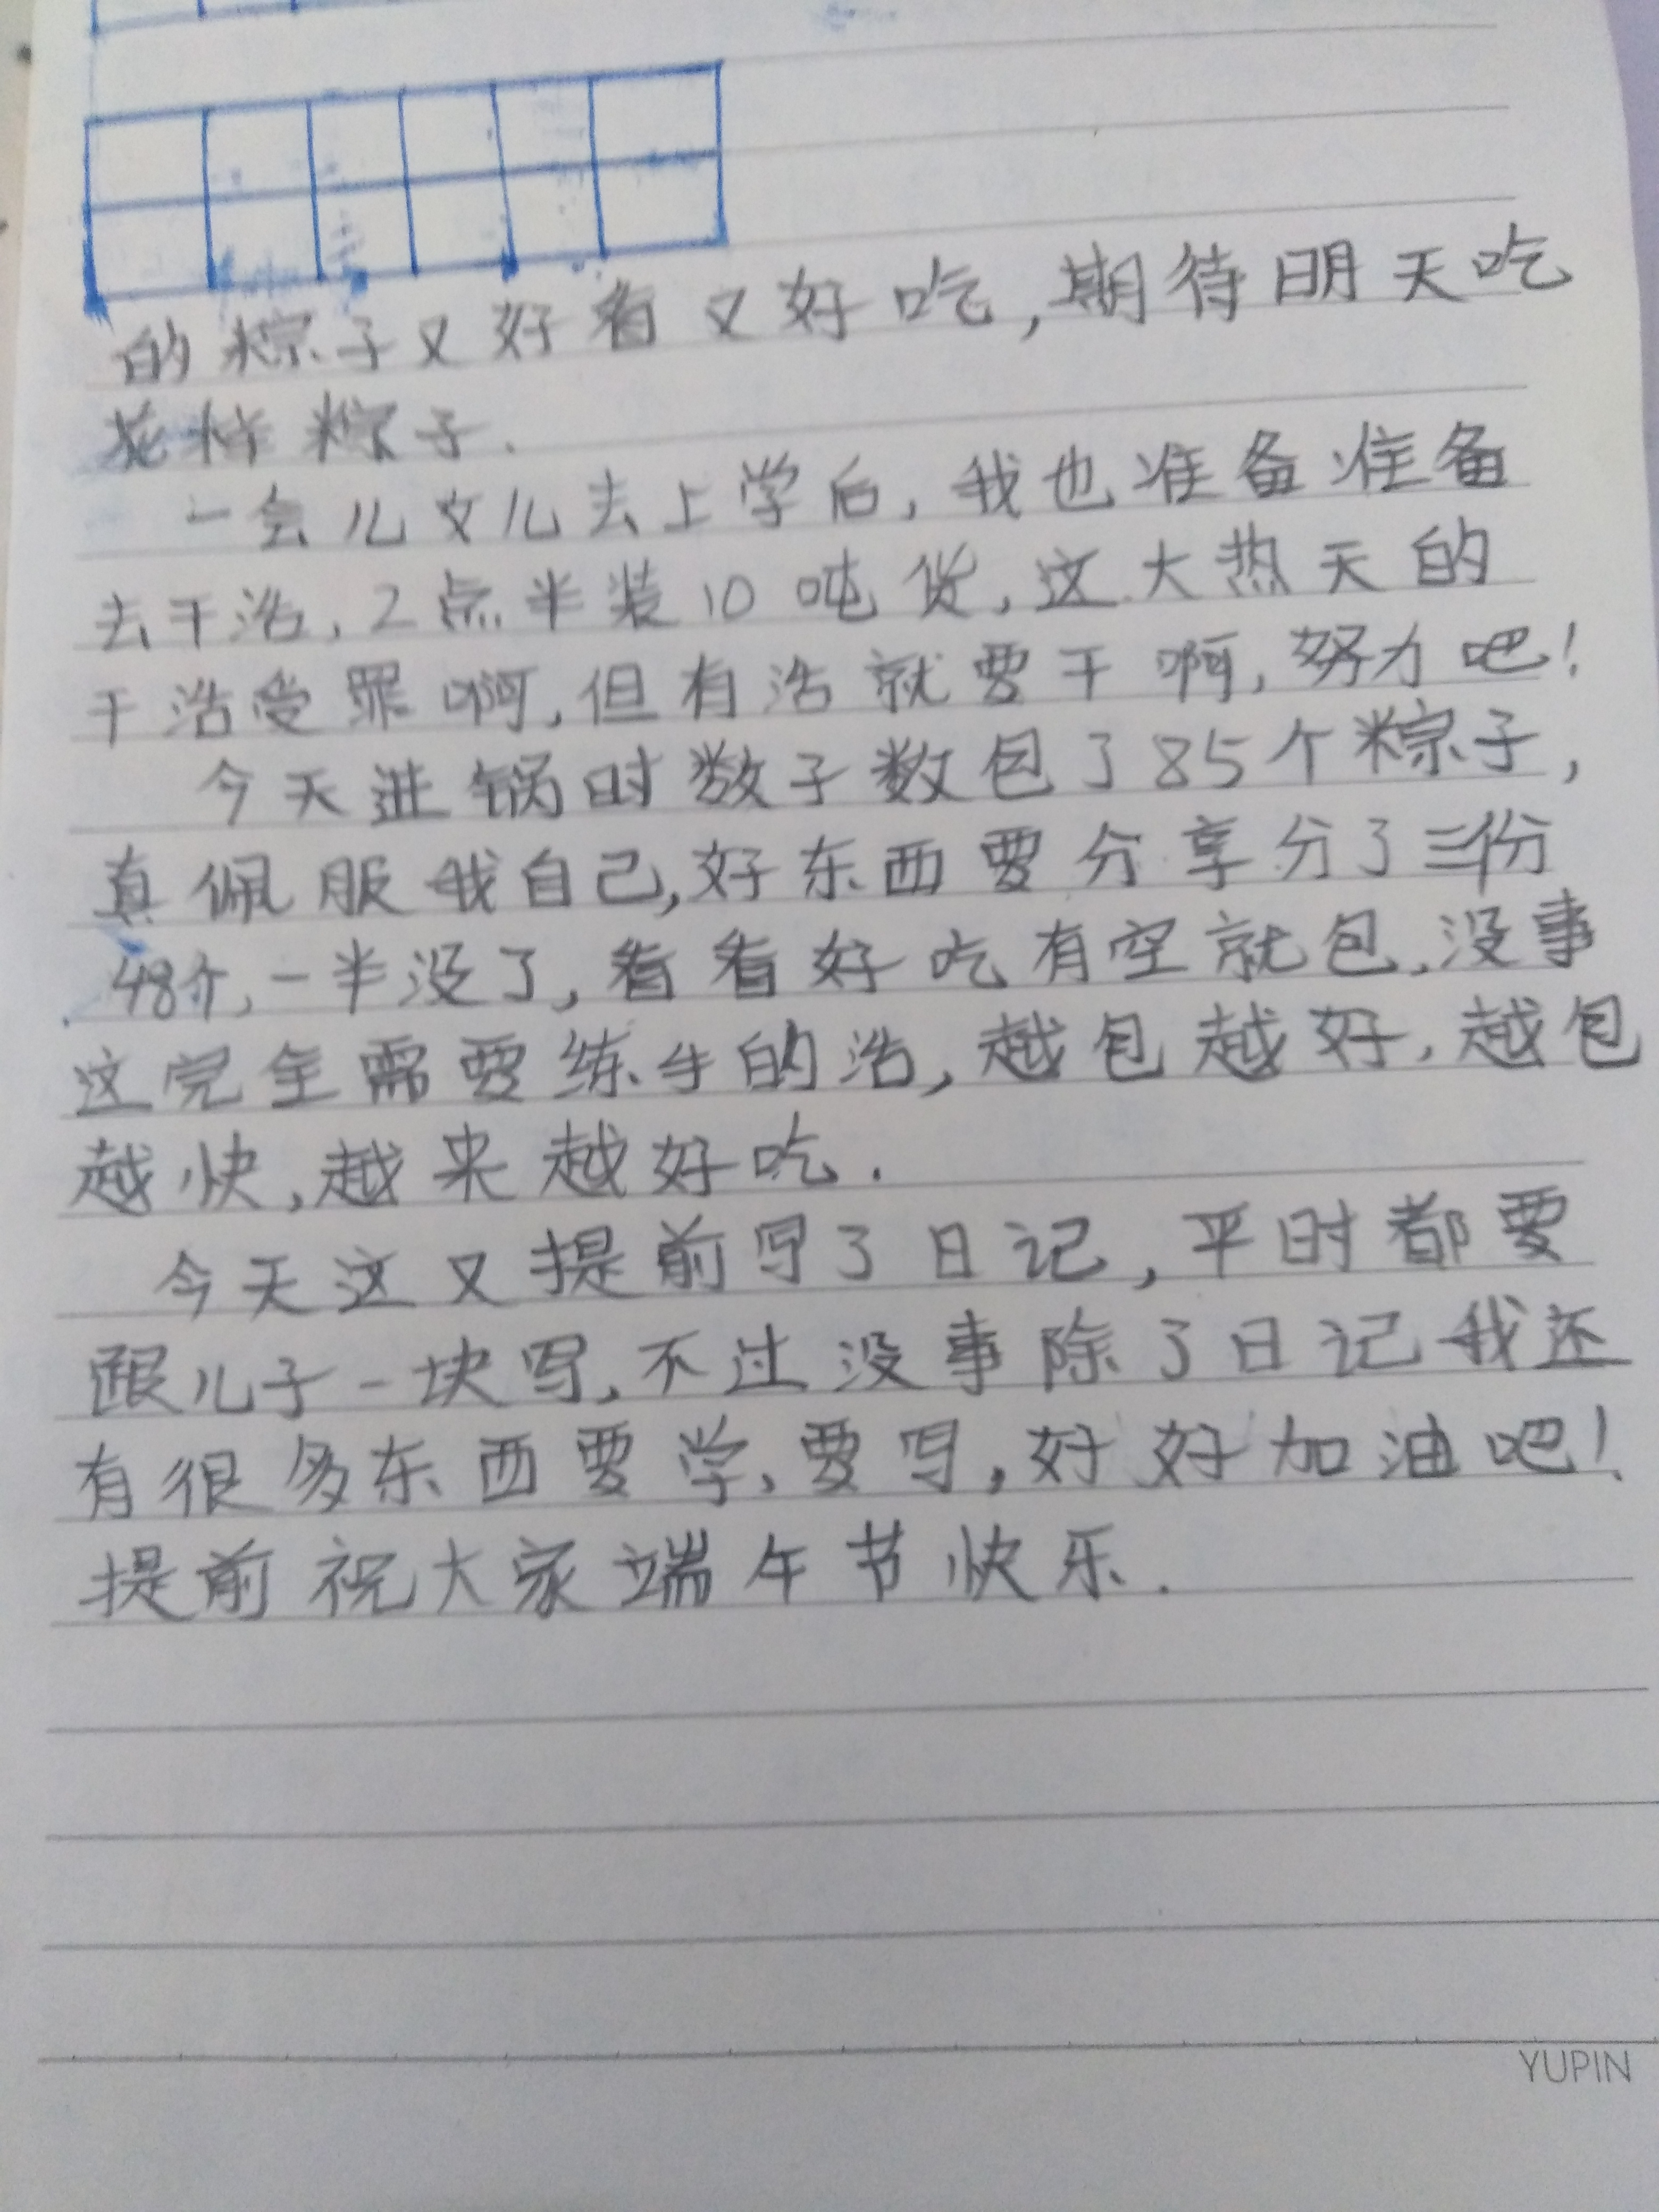 的粽子又好看又好吃,期待明天吃
花样粽子.
一会儿女儿去上学后,我也准备准备
去干活,2点半装10吨货,这大热天的
干活受罪啊,但有活就要干啊,努力吧!
今天进锅时数了数包了85个粽子,
真佩服我自己,好东西要分享分了三份
48个,一半没了,看看好吃有空就包,没事
这完全需要练手的活,越包越好,越包
越快,越来越好吃.
今天这又提前写了日记,平时都要
跟儿子一块写,不过没事除了日记我还
有很多东西要学,要写,好好加油吧!
提前祝大家端午节快乐.
YUPIN